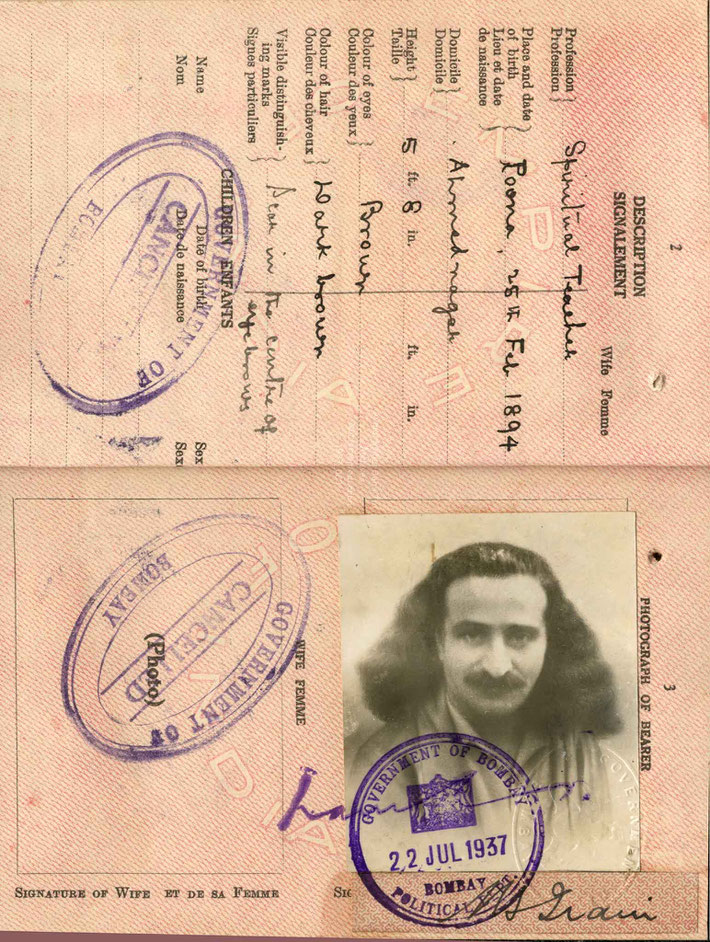 2
DESCRIPTION
SIGNALEMENT
Wife Femme
Profession
Profession
Spiritual Teacher
Place and date
of birth
Lieu et date
de naissance
Poona, 25th Feb 1894
Domicile
Domicile
Ahmednagar
Height
Taille
5 ft. 8 in.
ft. in.
Colour of eyes
Couleur des yeux
Brown
Colour of hair
Couleur des cheveux
Dark brown
Visible distinguish-
ing marks
Signes particuliers
Scar in the centre of
eyebrows
CHILDREN ENFANTS
Name
Nom
Date of birth
Date de naissance
Sex
GOVERNMENT OF
BOMBAY
3
PHOTOGRAPH OF BEARER
WIFE FEMME
(Photo)
GOVERNMENT OF
BOMBAY
CANCELLED
GOVERNMENT OF BOMBAY
22 JUL 1937
BOMBAY
POLITICAL
SIGNATURE OF WIFE ET DE SA FEMME
Irani